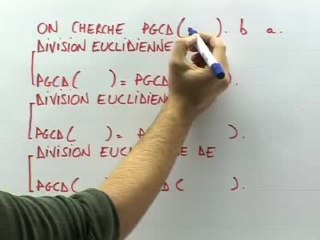 ON CHERCHE PGCD( ). b a.
DIVISION EUCLIDIENNE
PGCD( ) = PGCD( ).
DIVISION EUCLIDIEN
PGCD( ) = ).
DIVISION EUCL DE
PGCD( ) ( ).